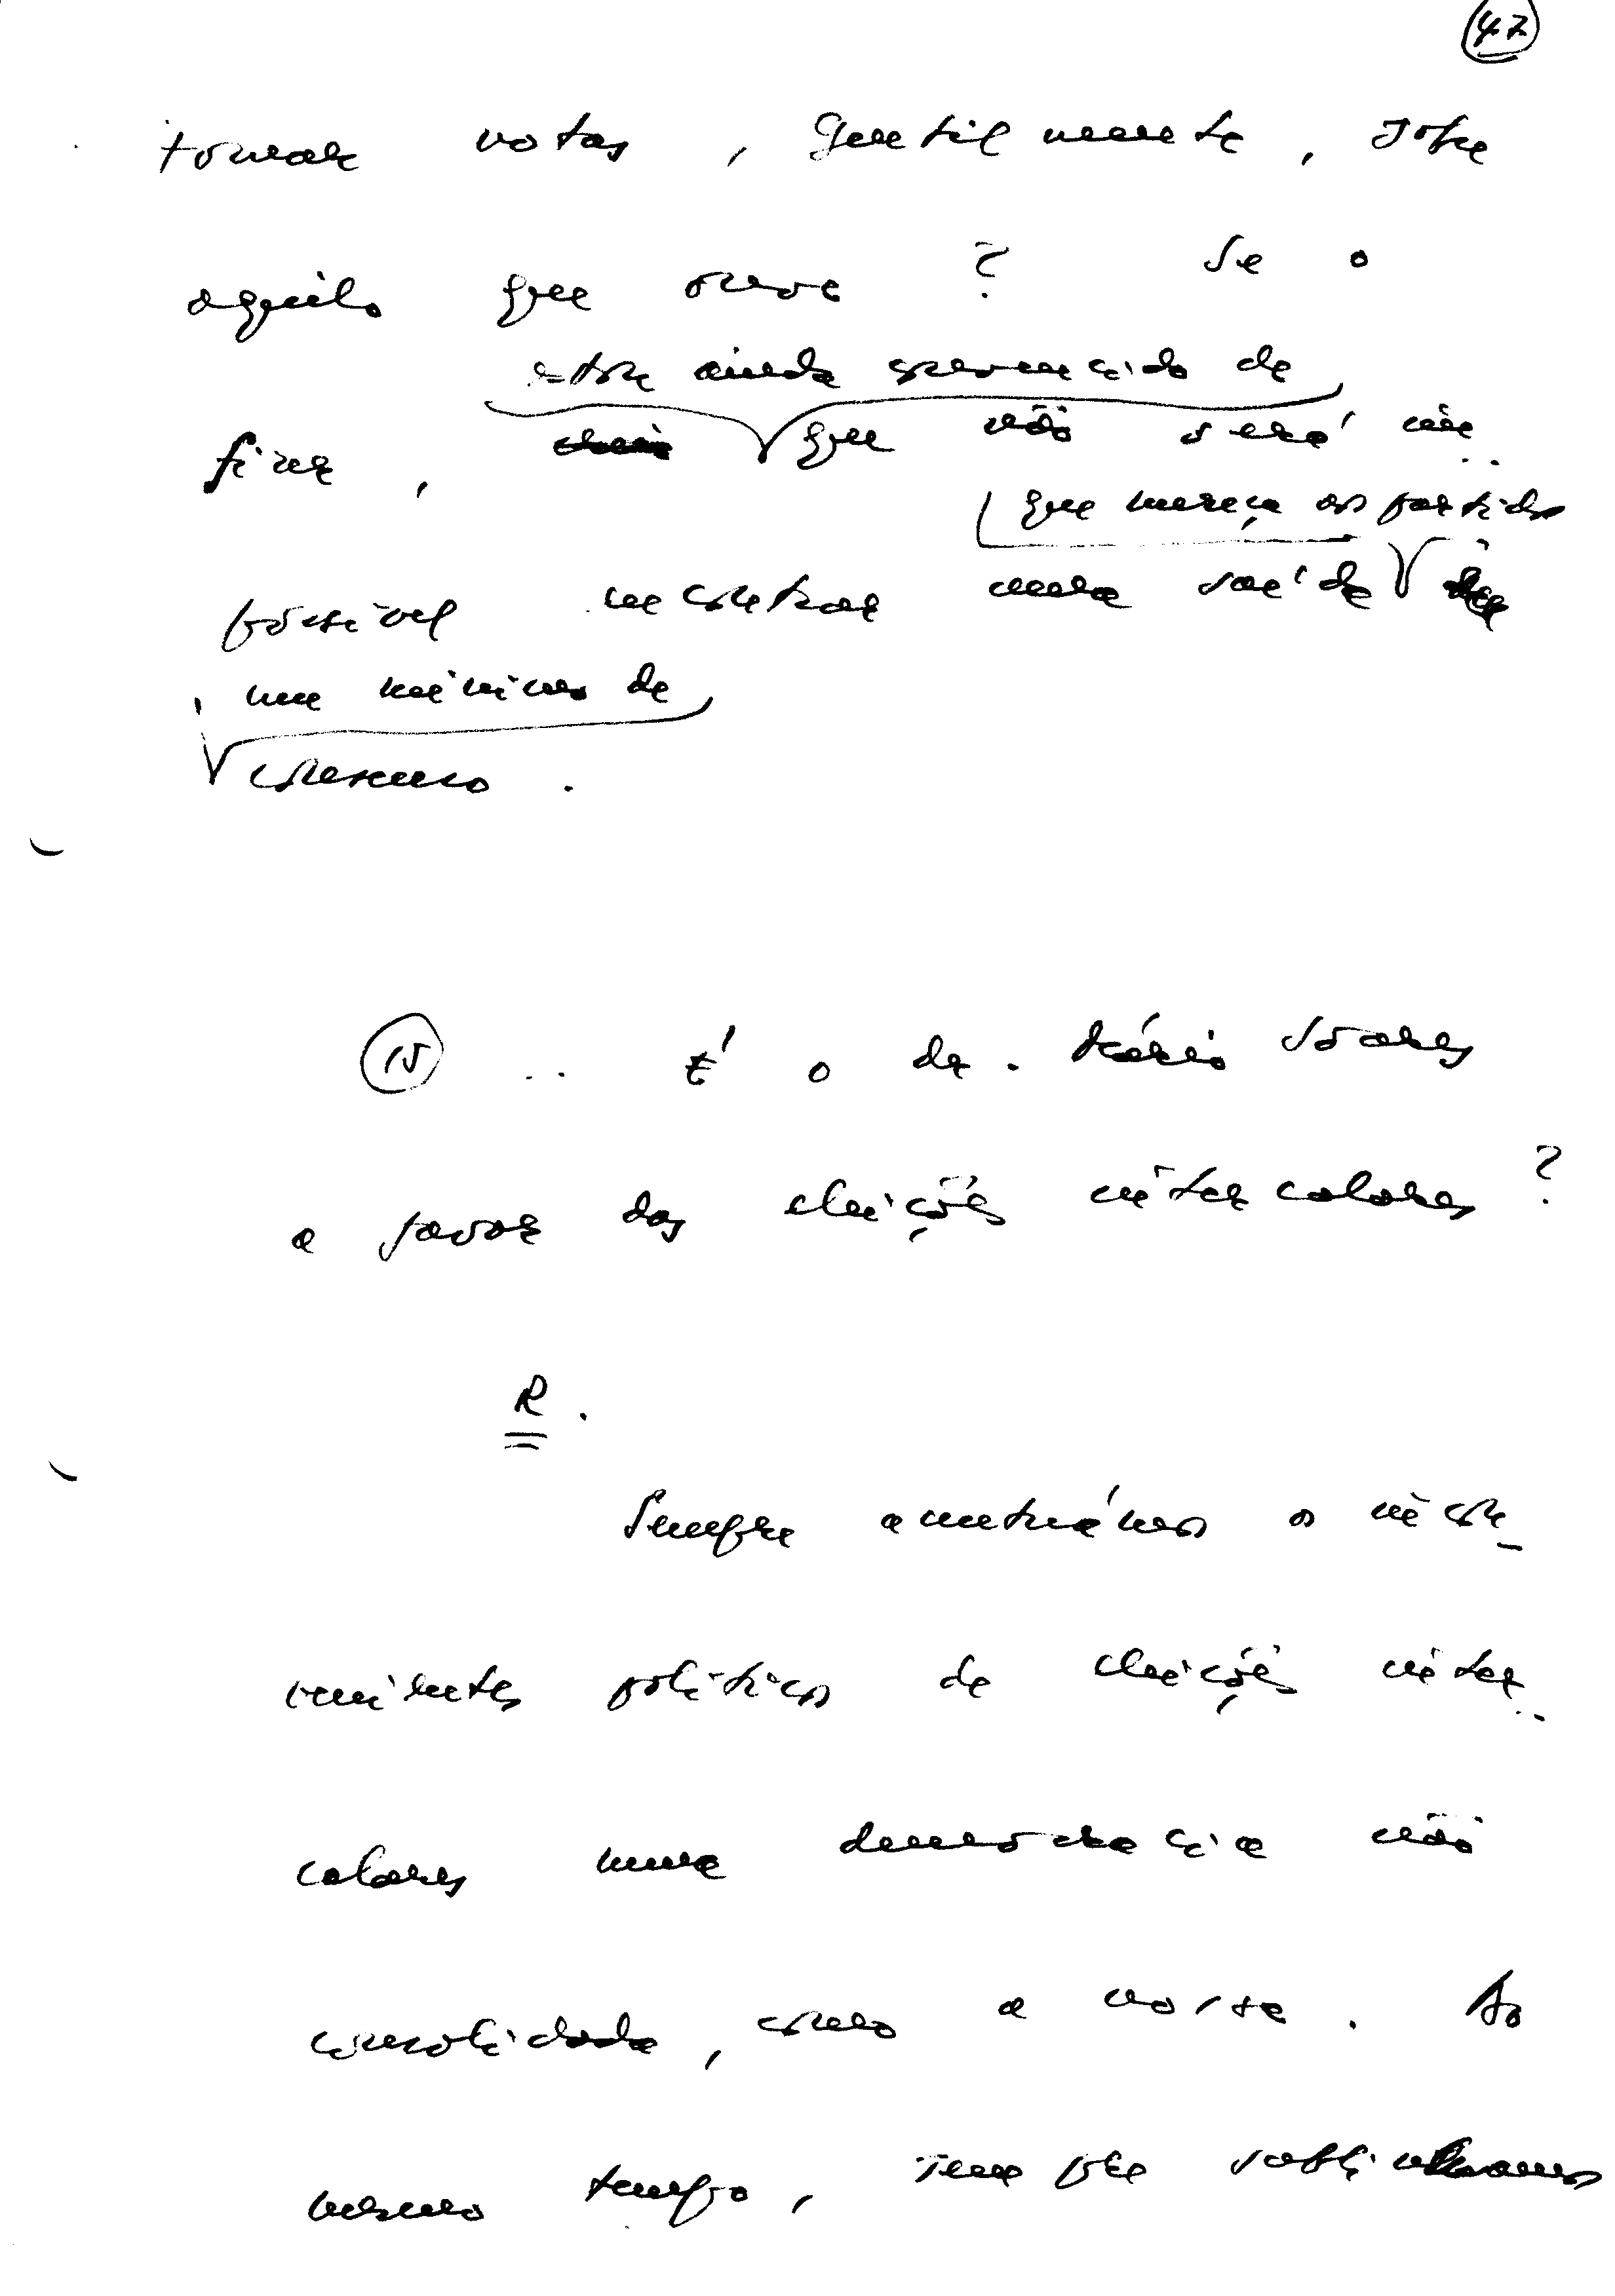 47
tomar notas, gentilmente, sobre
aquilo que ouve? Se o
estou ainda convencido de
fizer, que não será im-
que mereça aos partidos
possível encontrar uma saída
um mínimo de
consenso.
15 .. É o dr. Mário Soares
a favor das eleições intercalares?
R.
Sempre apontámos os incon-
venientes políticos de eleições inter-
calares numa democracia não
consolidada, como a nossa. Ao
mesmo tempo, sempre sublinhámos